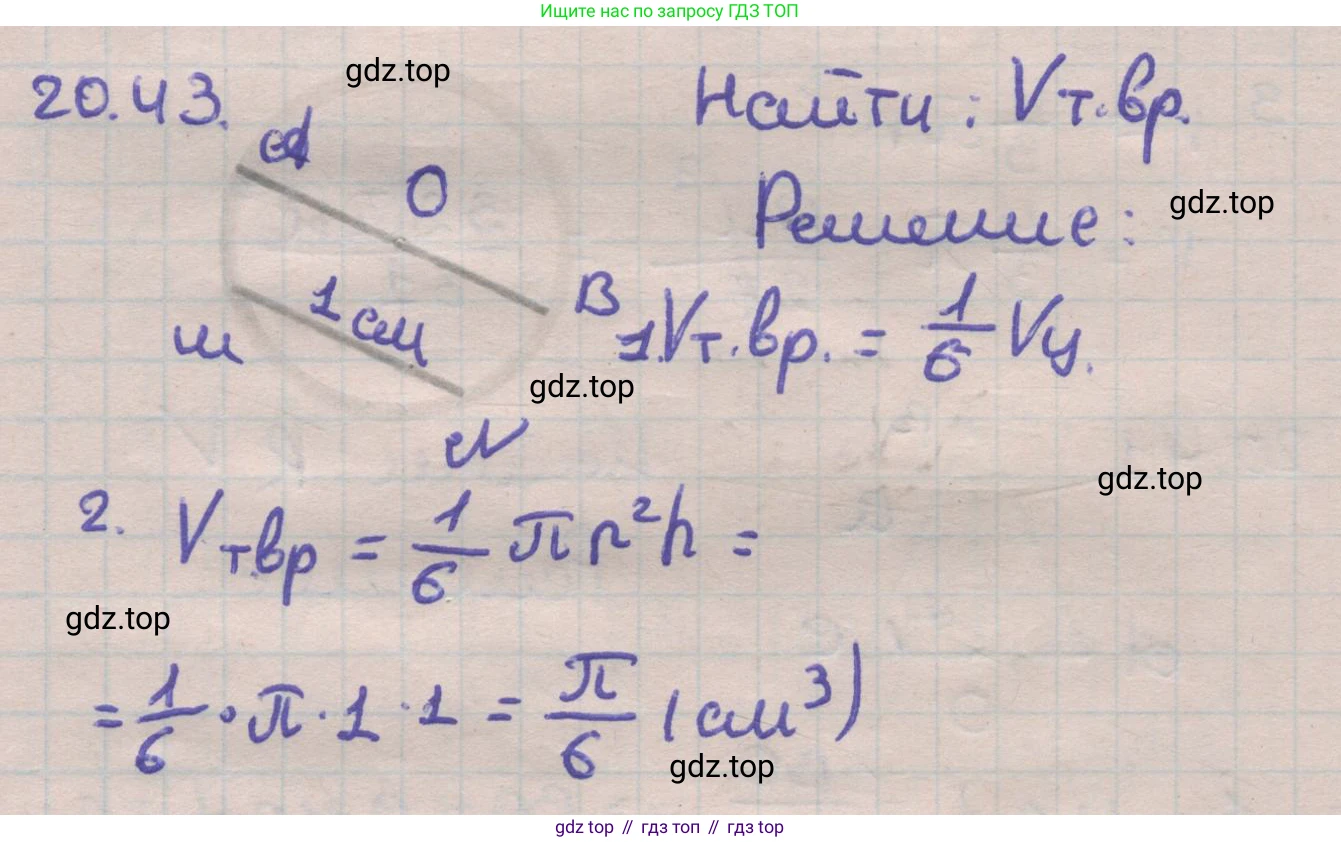 Ищите нас по запросу ГДЗ ТОП
20.43.
gdz.top
Найти: Vт.вр.
A
O
gdz.top
Решение:
1 см
B
м
1. Vт.вр. = 1/6 Vц.
gdz.top
N
gdz.top
2. Vт.вр = 1/6 π r²h =
gdz.top
= 1/6 · π · 1 · 1 = π/6 (см³)
gdz.top
gdz top // гдз топ // гдз top